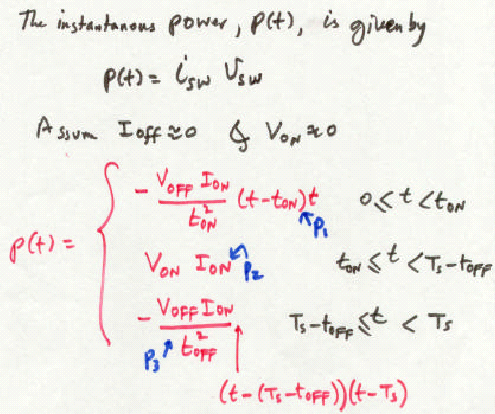 The instantanous power, p(t), is given by
p(t) = i_sw v_sw
Assum I_OFF ≈ 0 & V_ON ≈ 0
p(t) = {
- V_OFF I_ON / t_ON^2 (t - t_ON) t    0 ≤ t < t_ON
P_1
V_ON I_ON    t_ON ≤ t < T_s - t_OFF
P_2
- V_OFF I_ON / t_OFF^2    T_s - t_OFF ≤ t < T_s
P_3
(t - (T_s - t_OFF)) (t - T_s)